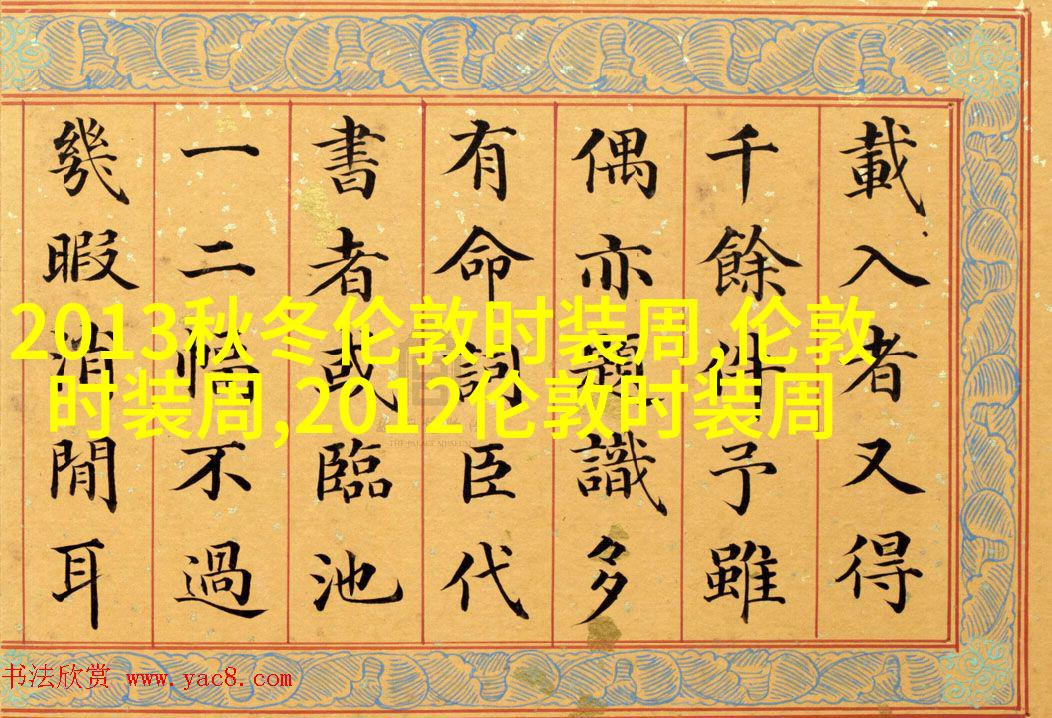 載入者又得
千餘件予雖
偶亦題識多
有命詞臣代
書者或臨池
一二幅不過
幾暇消閒耳
2013秋冬伦敦时装周,伦敦
时装周,2012伦敦时装周
THE PALACE MUSEUM
书法欣赏 www.yac8.com